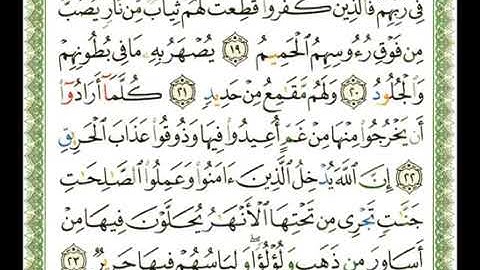 فِى رَبِّهِمْ فَٱلَّذِينَ كَفَرُوا۟ قُطِّعَتْ لَهُمْ ثِيَابٌ مِّن نَّارٍ يُصَبُّ
مِن فَوْقِ رُءُوسِهِمُ ٱلْحَمِيمُ ١٩ يُصْهَرُ بِهِۦ مَا فِى بُطُونِهِمْ
وَٱلْجُلُودُ ٢٠ وَلَهُم مَّقَٰمِعُ مِنْ حَدِيدٍ ٢١ كُلَّمَآ أَرَادُوٓا۟
أَن يَخْرُجُوا۟ مِنْهَا مِنْ غَمٍّ أُعِيدُوا۟ فِيهَا وَذُوقُوا۟ عَذَابَ ٱلْحَرِيقِ
٢٢ إِنَّ ٱللَّهَ يُدْخِلُ ٱلَّذِينَ ءَامَنُوا۟ وَعَمِلُوا۟ ٱلصَّٰلِحَٰتِ
جَنَّٰتٍ تَجْرِى مِن تَحْتِهَا ٱلْأَنْهَٰرُ يُحَلَّوْنَ فِيهَا مِنْ
أَسَاوِرَ مِن ذَهَبٍ وَلُؤْلُؤًا ۖ وَلِبَاسُهُمْ فِيهَا حَرِيرٌ ٢٣